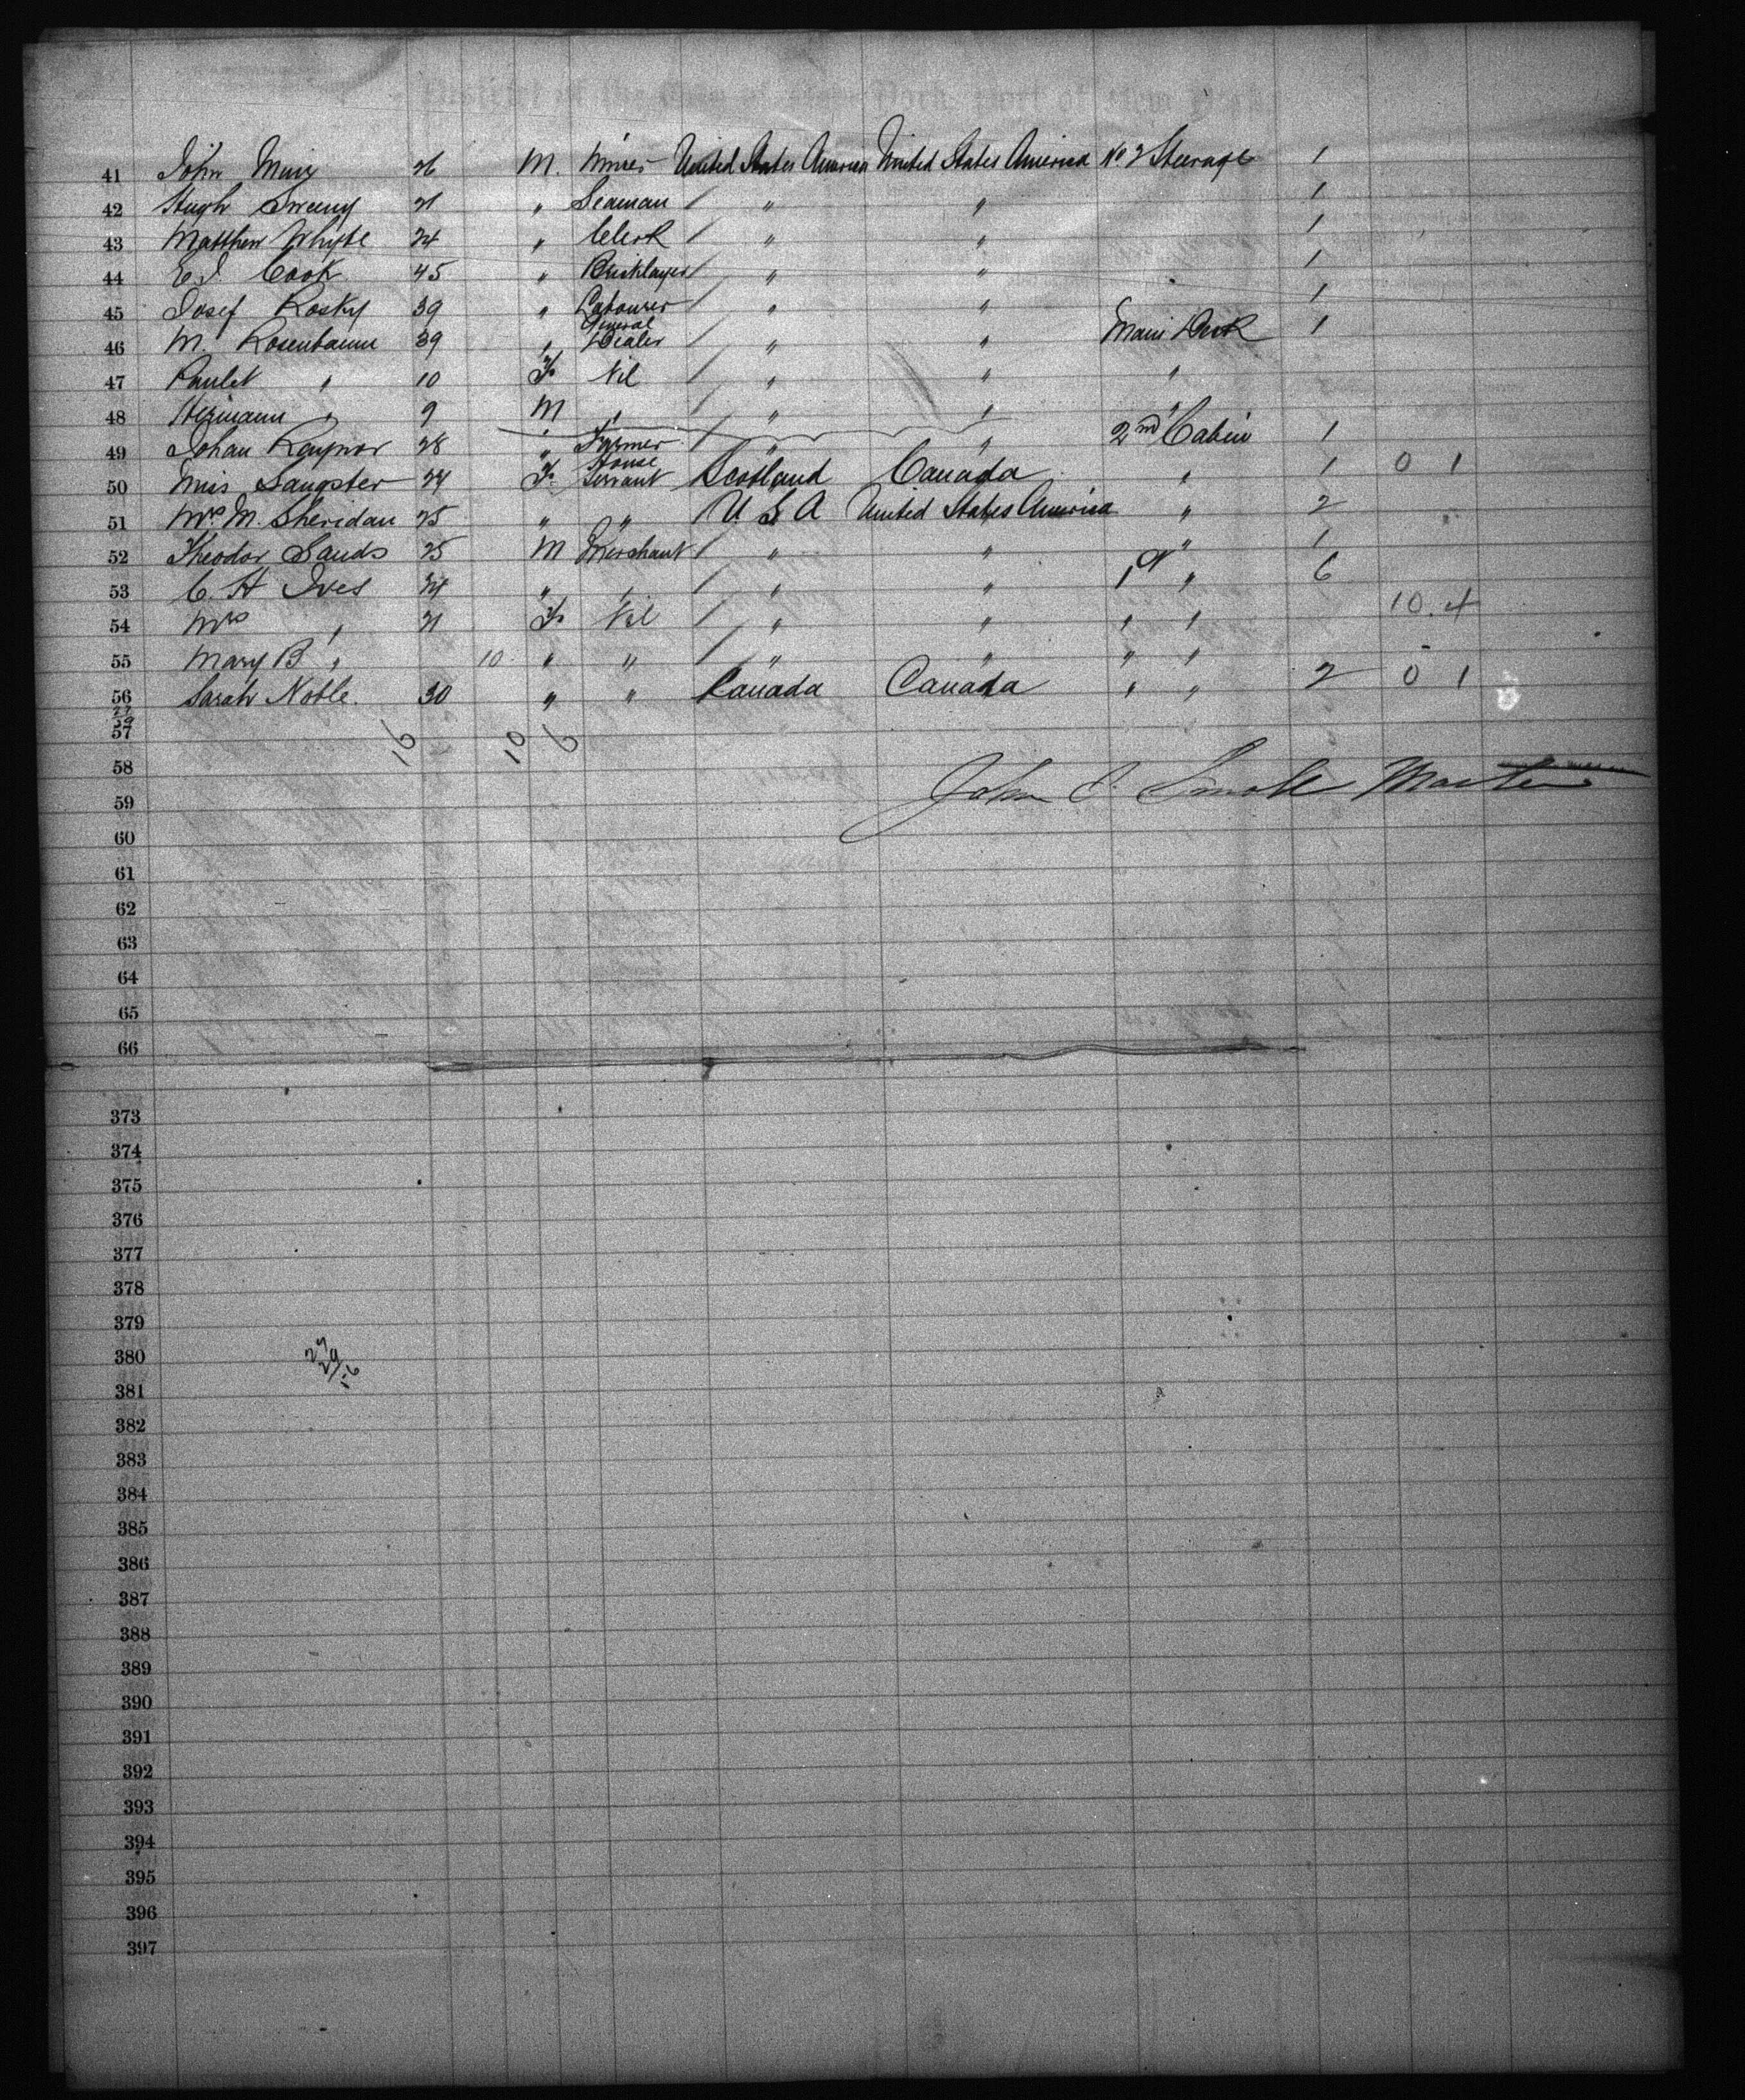 District of the City of New York, Port of New York
41 John Muir 26 M. Miner United States America United States America No 2 Steerage 1
42 Hugh Sweeny 21 " Seaman / " " 1
43 Matthew Whyte 24 " Clerk / " " 1
44 E. J. Cook 45 " Bricklayer / " " 1
45 Josef Rosky 39 " Labourer / " " 1
46 M. Rosenbaum 39 " General Dealer / " " Main Deck 1
47 Paulet " 10 F. Nil / " " "
48 Hermann " 9 M " / " " "
49 Johan Raynor 28 " Farmer / " " 2nd Cabin 1
50 Miss Sangster 24 F. House Servant Scotland Canada " 1 0 1
51 Mrs M. Sheridan 25 " " U S A United States America " 2
52 Theodor Sands 25 M Merchant / " " " 1
53 C. H Ives 34 " " / " " 1st " 6
54 Mrs " 21 F. Nil / " " " " 10.4
55 Mary B " 10 " " / " " " "
56 Sarah Noble. 30 " " Canada Canada " " 2 0 1
57 16 10 6
58
John C. Small Master
59
60
61
62
63
64
65
66
373
374
375
376
377
378
379
380 27
29
16
381
382
383
384
385
386
387
388
389
390
391
392
393
394
395
396
397